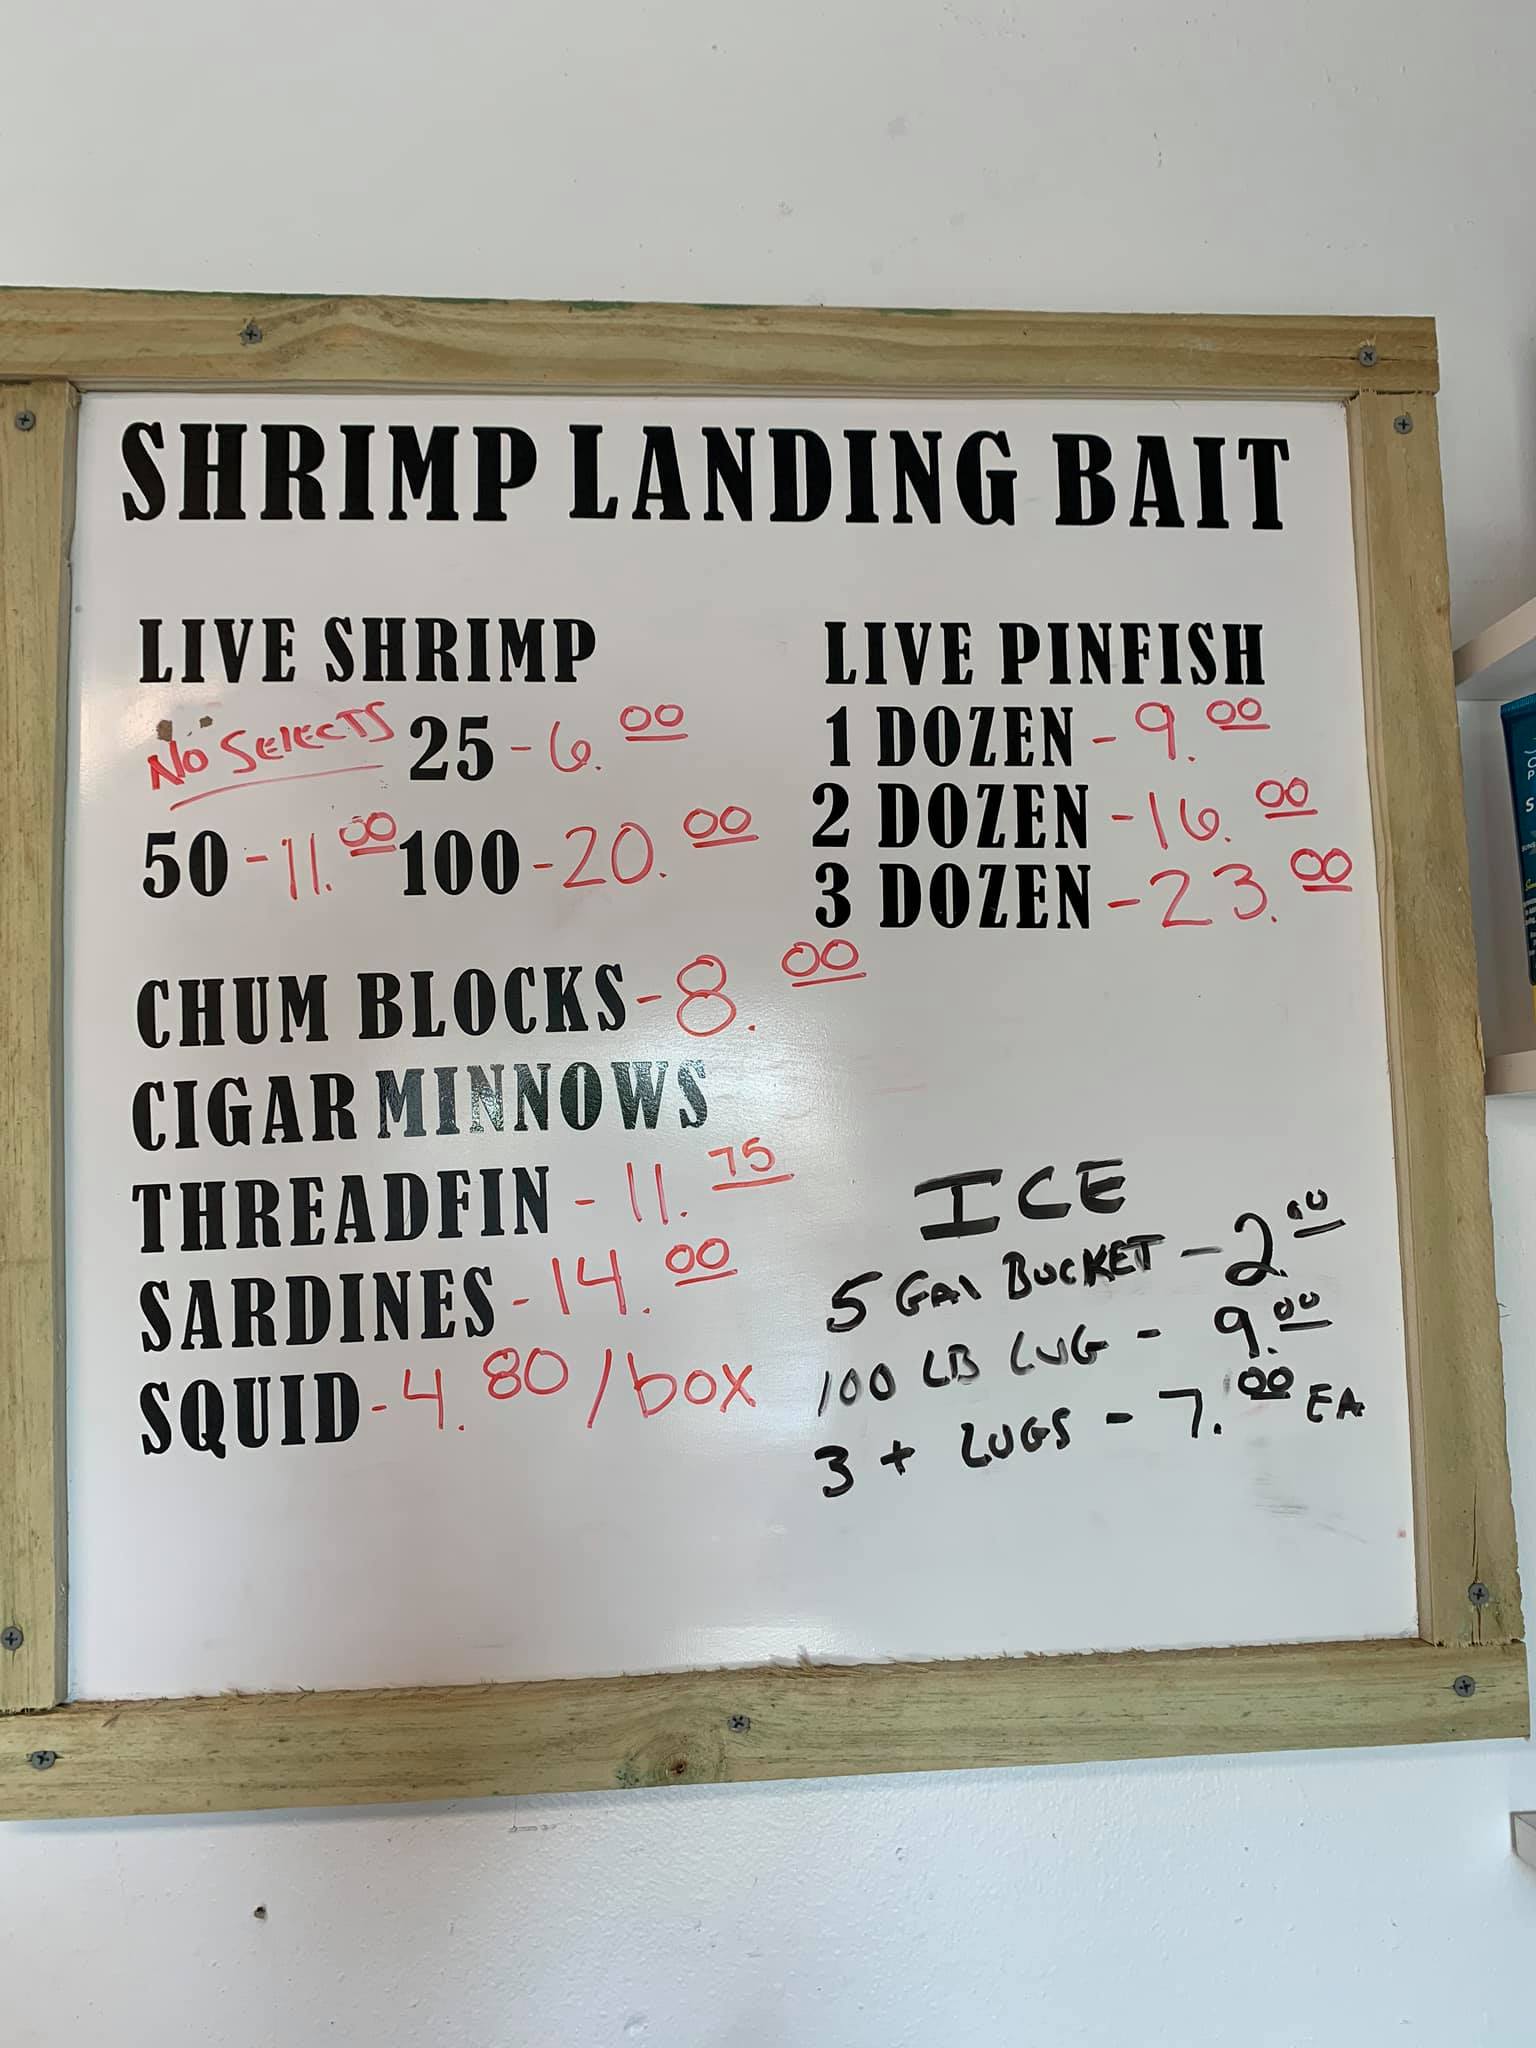 SHRIMP LANDING BAIT
LIVE SHRIMP
NO SELECTS 25 - 6.00
50 - 11.00 100 - 20.00
LIVE PINFISH
1 DOZEN - 9.00
2 DOZEN - 16.00
3 DOZEN - 23.00
CHUM BLOCKS - 8.00
CIGAR MINNOWS
THREADFIN - 11.75
SARDINES - 14.00
SQUID - 4.80/box
ICE
5 GAl BUCKET - 2.00
100 LB LUG - 9.00
3 + LUGS - 7.00 EA